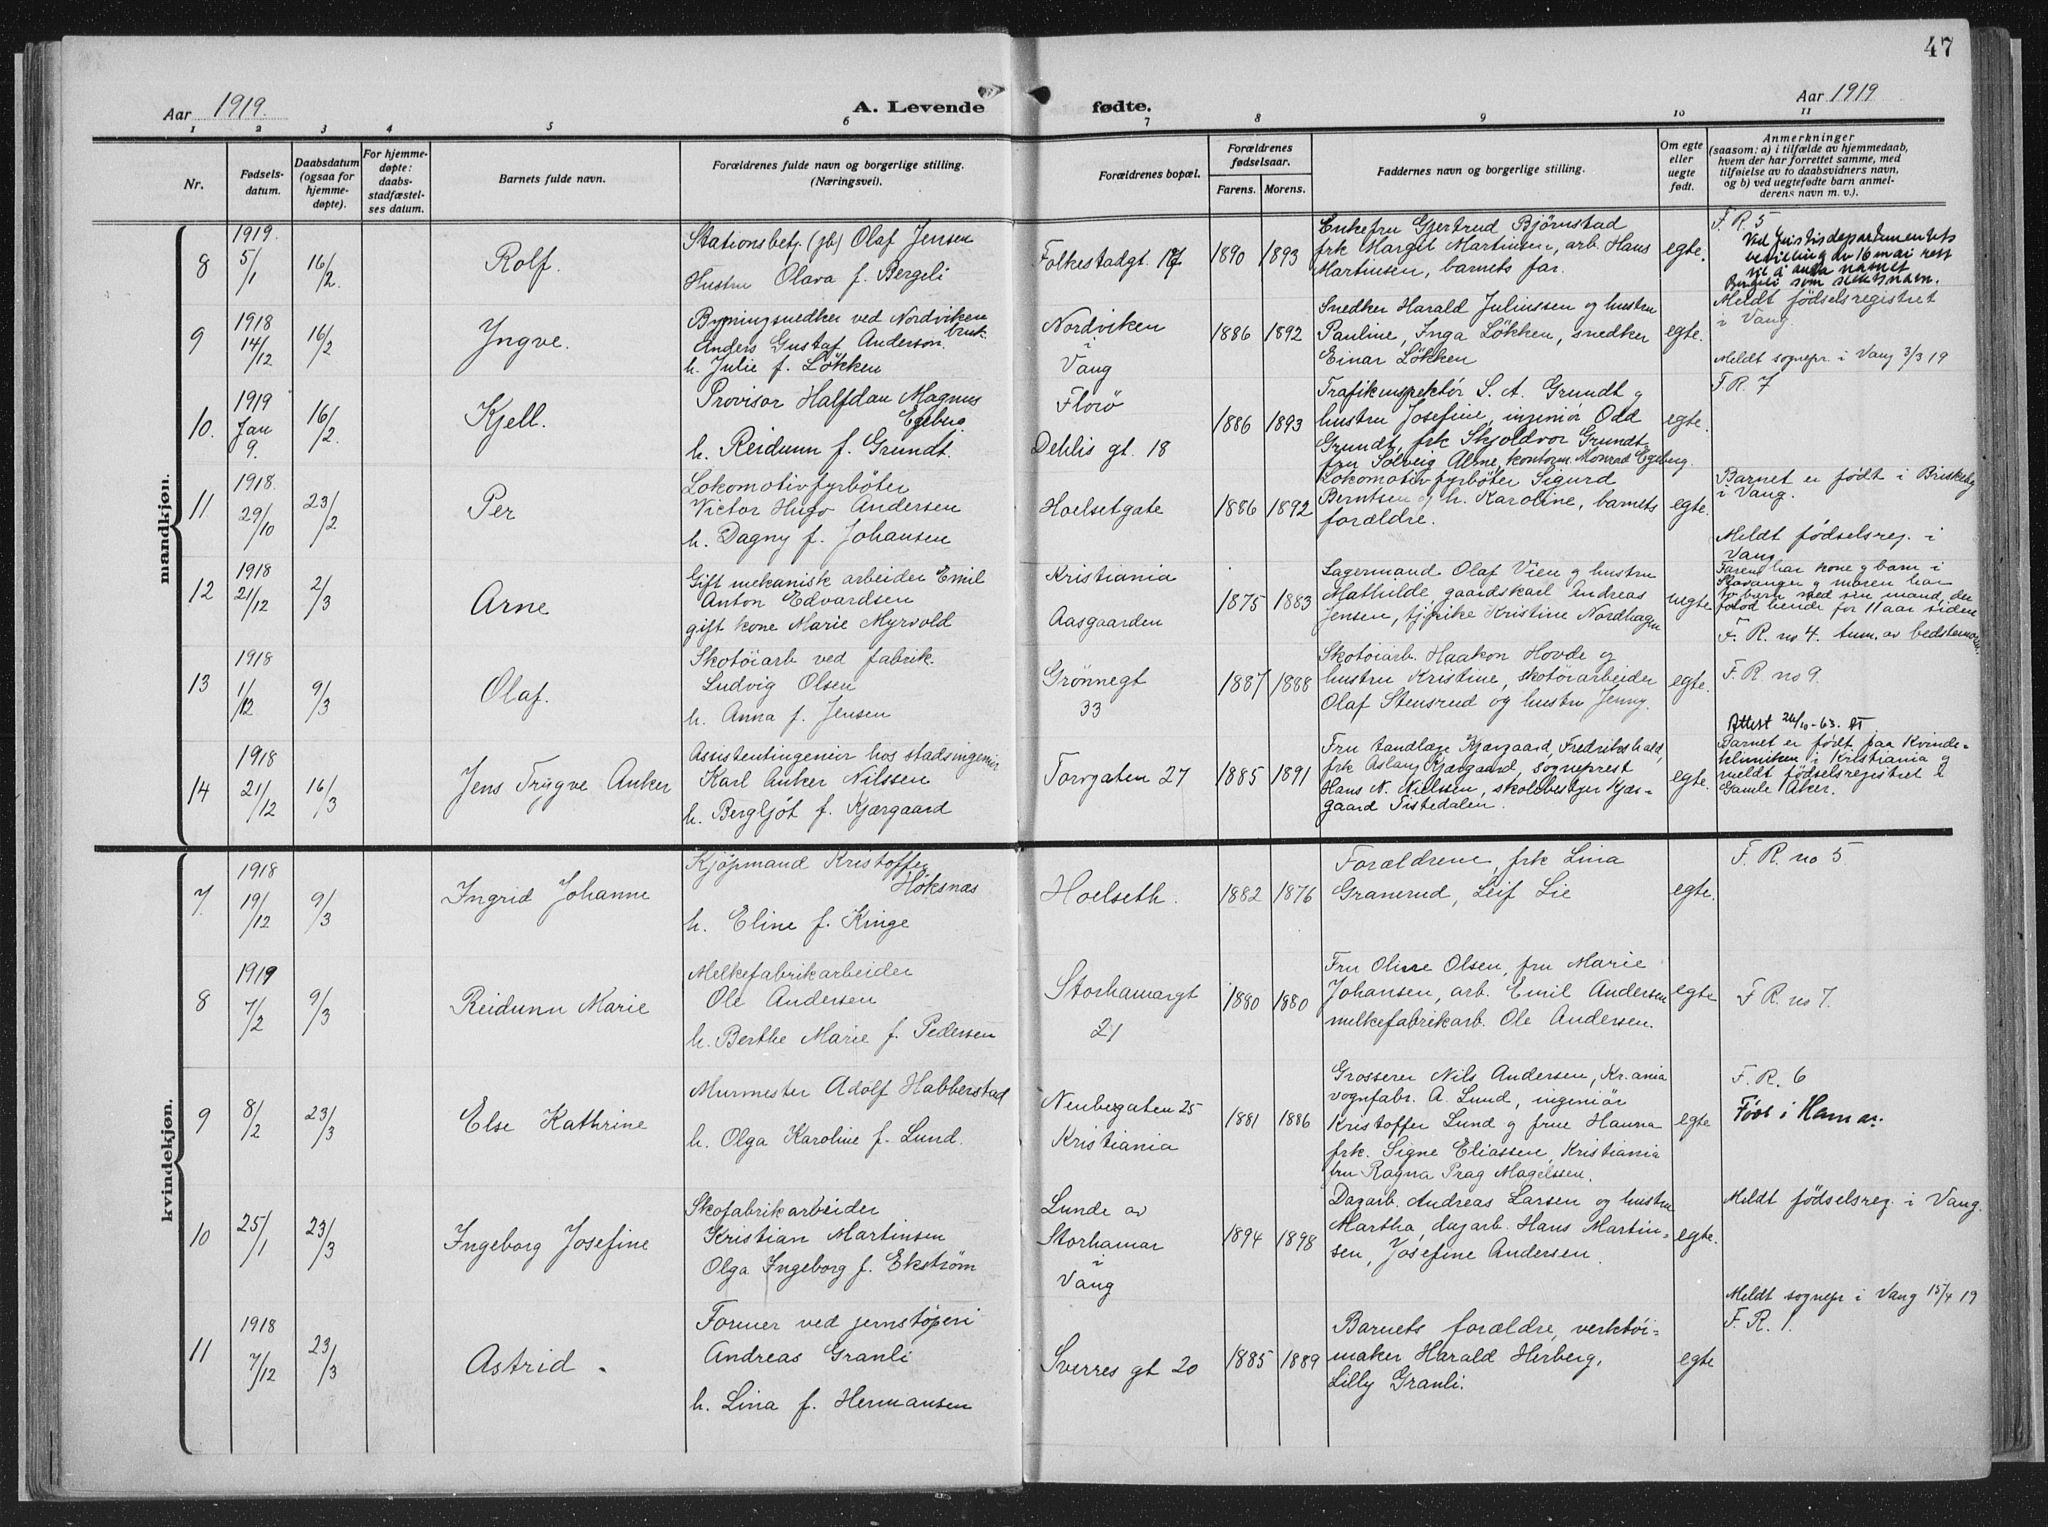 47
Aar 1919.
A. Levende fødte.
Aar 1919
1 2 3 4 5 6 7 8 9 10 11
Nr.
Fødsels-
datum.
Daabsdatum
(ogsaa for
hjemme-
døpte).
For hjemme-
døpte:
daabs-
stadfæstel-
ses datum.
Barnets fulde navn.
Forældrenes fulde navn og borgerlige stilling.
(Næringsvei).
Forældrenes bopæl.
Forældrenes
fødselsaar.
Farens. Morens.
Faddernes navn og borgerlige stilling.
Om egte
eller
uegte
født.
Anmerkninger
(saasom: a) i tilfælde av hjemmedaab,
hvem der har forrettet samme, med
tilføielse av to daabsvidners navn,
og b) ved uegtefødte barn anmel-
derens navn m. v.).
mandkjøn.
8
1919.
5/1
16/2.
Rolf.
Stationsbetj. (jb) Olaf Jensen
Hustru Olava f. Bergeli
Folkestadgt. 17
1890 1893
Enkefru Gjertrud Bjørnstad
frk Margit Martinsen, arb. Hans
Martinsen, barnets far.
egte.
F. R. 5
Ved Justisdepartementets
bevilling av 16 mai rett
til å anta navnet
Bergeli som slektsnavn.
9
1918
14/12
16/2
Yngve.
Bygningsnedker ved Nordviken
bruk
Anders Gustaf Anderson.
h. Julie f. Løkken
Nordviken
i
Vang
1886 1892
Snedker Harald Juliussen og hustru
Pauline, Inga Løkken, snedker
Einar Løkken
egte.
Meldt fødselsregistret
i Vang.
Meldt sognepr. i Vang 3/3 19
10.
1919
Jan
9.
16/2.
Kjell.
Provisor Halfdan Magnus
Egeberg.
h. Reidunn f. Grundt.
Florø
Dehlis gt. 18
1886 1893
Trafikinspektør S. A. Grundt g
hustru Josefine, ingeniør Odd
Grundt, frk Skjoldvor Grundt,
fru Solveig Alme, kontorm. Monrad Egeberg.
egte.
F. R. 7
11.
1918.
29/10
23/2
Per
Lokomotivfyrbøter
Victor Hugo Andersen
h. Dagny f. Johansen
Hoelsetgate
1886 1892
Lokomotivfyrbøter Sigurd
Berntsen og h. Karoline, barnets
forældre.
egte.
Barnet er født i Briskeby
i Vang.
Meldt fødselsreg. i
Vang
12
1918
21/12
2/3
Arne
Gift mekanisk arbeider Emil
Anton Edvardsen
gift kone Marie Myrvold
Kristiania
Aasgaarden
1875 1883
Lagermand Olaf Vien g hustru
Mathilde, gaardskarl Andreas
Jensen, tj.pike Kristine Nordhagen
uegte
Faren har kone g barn i
Stavanger g moren har
to barn med sin mand, der
forlod hende for 11 aar siden
F. R. no 4. Anm. av bedstemoren.
13
1918
1/12
9/3
Olaf.
Skotøiarb ved fabrik.
Ludvig Olsen
h. Anna f. Jensen
Grønnegt
33
1887 1888
Skotøiarb. Haakon Hovde g
hustru Kristine, skotøiarbeider
Olaf Stensrud og hustru Jenny.
egte.
F. R. no 9.
Attest 26/10-63.
14
1918
21/12
16/3
Jens Trygve Anker
Assistentingeniør hos stadsingeniør
Karl Anker Nilssen
h. Bergljot f. Kjærgaard
Torvgaten 27
1885 1891
Fru tandlæge Kjærgaard, Fredrikshald,
frk Aslaug Kjærgaard, sogneprest
Hans N. Nielssen, skolebestyr Kjær-
gaard Tistedalen.
egte.
Barnet er født paa Kvinde-
kliniken i Kristiania g
meldt fødselsregistret i
Gamle Aker.
kvindekjøn.
7.
1918
19/12
9/3
Ingrid Johanne
Kjøpmand Kristoffer
Høksnas
h. Eline f. Kinge
Hoelseth.
1882 1876
Forældrene, frk Lina
Granerud, Leif Lie
egte.
F. R. no 5
8
1919
7/2
9/3
Reidunn Marie
Melkefabrikarbeider
Ole Andersen
h. Berthe Marie f. Pedersen
Storhamargt
21
1880 1880
Fru Oline Olsen, fru Marie
Johansen, arb. Emil Andersen
melkefabrikarb. Ole Andersen.
egte
F. R. no 7.
9
8/2
23/3
Else Kathrine
Murmester Adolf Habberstad
h. Olga Karoline f. Lund.
Neubergaten 25
Kristiania
1881 1886
Grosserer Nils Andersen, Kr.ania
vognfabr. A. Lund, ingeniør
Kristoffer Lund g frue Hanna
frk. Signe Eliassen, Kristiania
fru Ragna Prag Magelssen.
egte
F. R. 6
Født i Hamar.
10
25/1
23/3
Ingeborg Josefine
Skofabrikarbeider
Kristian Martinsen
Olga Ingeborg f. Ekstrøm
Lunde av
Storhamar
i
Vang
1894 1898
Dagarb. Andreas Larsen og hustru
Martha, dagarb. Hans Martin-
sen, Josefine Andersen.
egte.
Meldt fødselsreg. i Vang.
Meldt sognepr i Vang 15/4 19
11
1918
7/12
23/3
Astrid
Former ved jernstøperi
Andreas Granli
h. Lina f. Hermansen
Sverres gt 20
1885 1889
Barnets forældre, verktøi-
maker Harald Herberg,
Lilly Granli.
egte
F. R. 1.